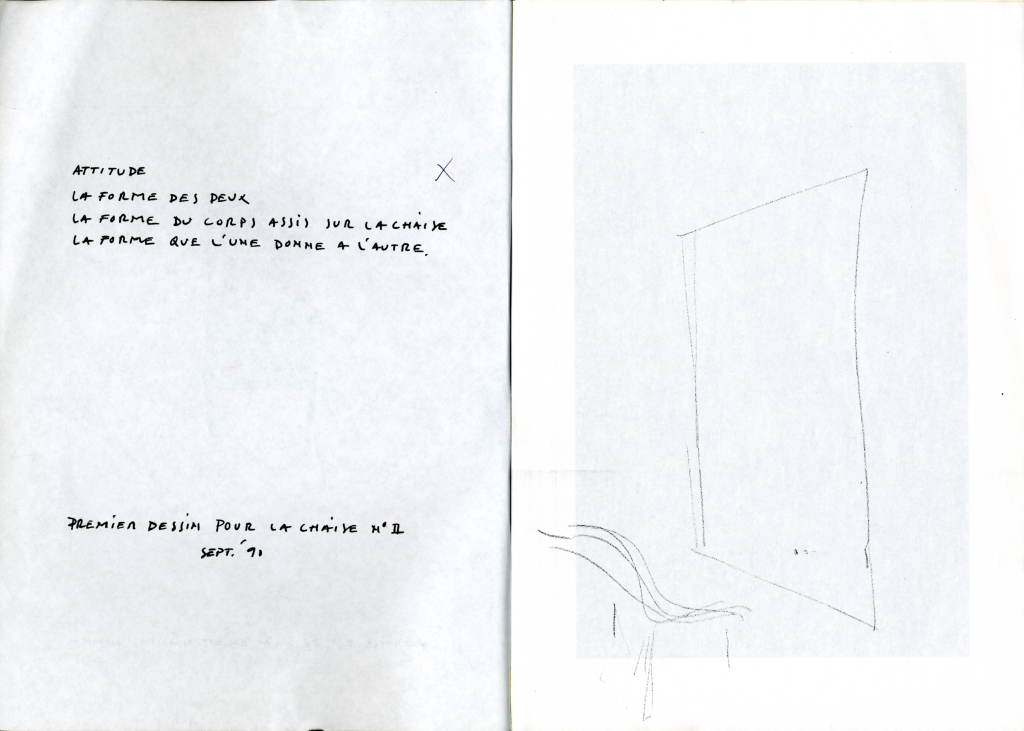 ATTITUDE
LA FORME DES DEUX
LA FORME DU CORPS ASSIS SUR LA CHAISE
LA FORME QUE L'UNE DONNE A L'AUTRE.
PREMIER DESSIN POUR LA CHAISE N° II
SEPT. '91